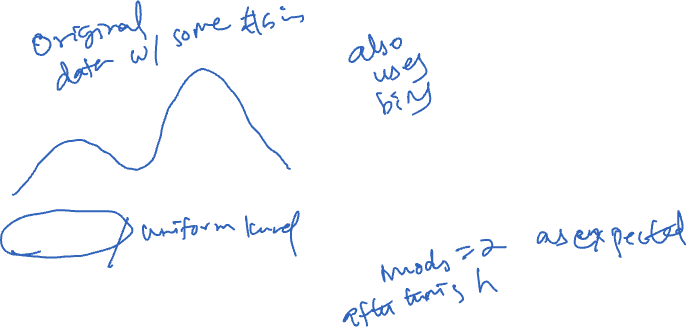 original
data w/ some #s in
also
uses
bins
uniform kernel
mods = 2 as expected
after tuning h